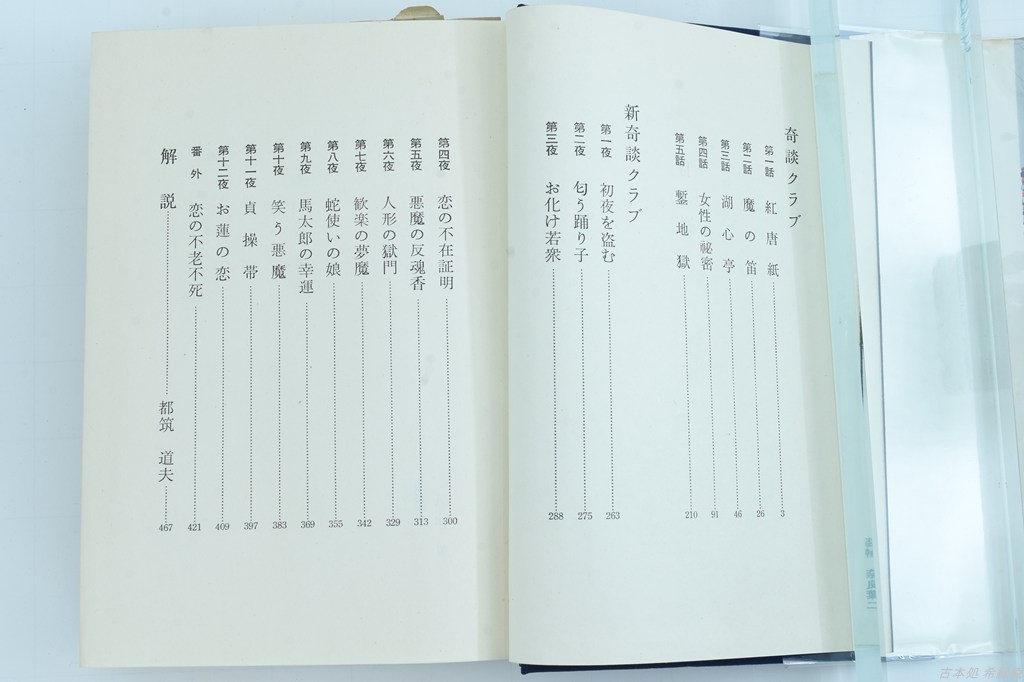 奇談クラブ
第一話 紅唐紙 3
第二話 魔の笛 26
第三話 湖心亭 46
第四話 女性の秘密 91
第五話 塹地獄 210
新奇談クラブ
第一夜 初夜を盗む 263
第二夜 匂う踊り子 275
第三夜 お化け若衆 288
第四夜 恋の不在証明 300
第五夜 悪魔の反魂香 313
第六夜 人形の獄門 329
第七夜 歓楽の夢魔 342
第八夜 蛇使いの娘 355
第九夜 馬太郎の幸運 369
第十夜 笑う悪魔 383
第十一夜 貞操帯 397
第十二夜 お蓮の恋 409
番外 恋の不老不死 421
解説 都筑 道夫 467
古本処